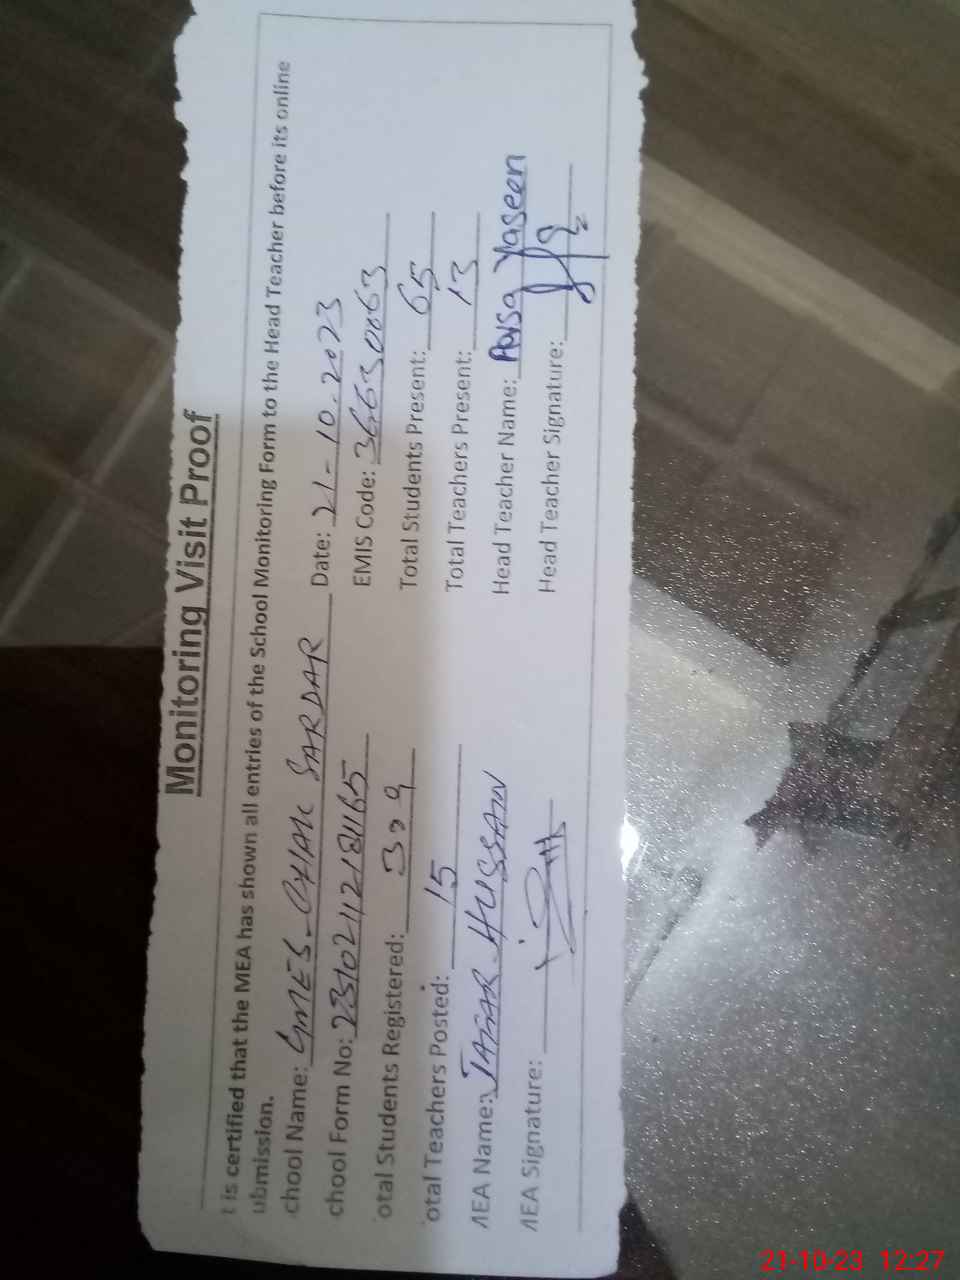 Monitoring Visit Proof
t is certified that the MEA has shown all entries of the School Monitoring Form to the Head Teacher before its online
ubmission.
chool Name: GMES CHAK SARDAR Date: 21-10-2023
chool Form No: EMIS Code: 36630063
otal Students Registered: 309 Total Students Present: 65
otal Teachers Posted: 15 Total Teachers Present: 13
MEA Name: JAFAR HUSSAIN Head Teacher Name: Yaseen
MEA Signature: Head Teacher Signature:
21-10-23 12:27